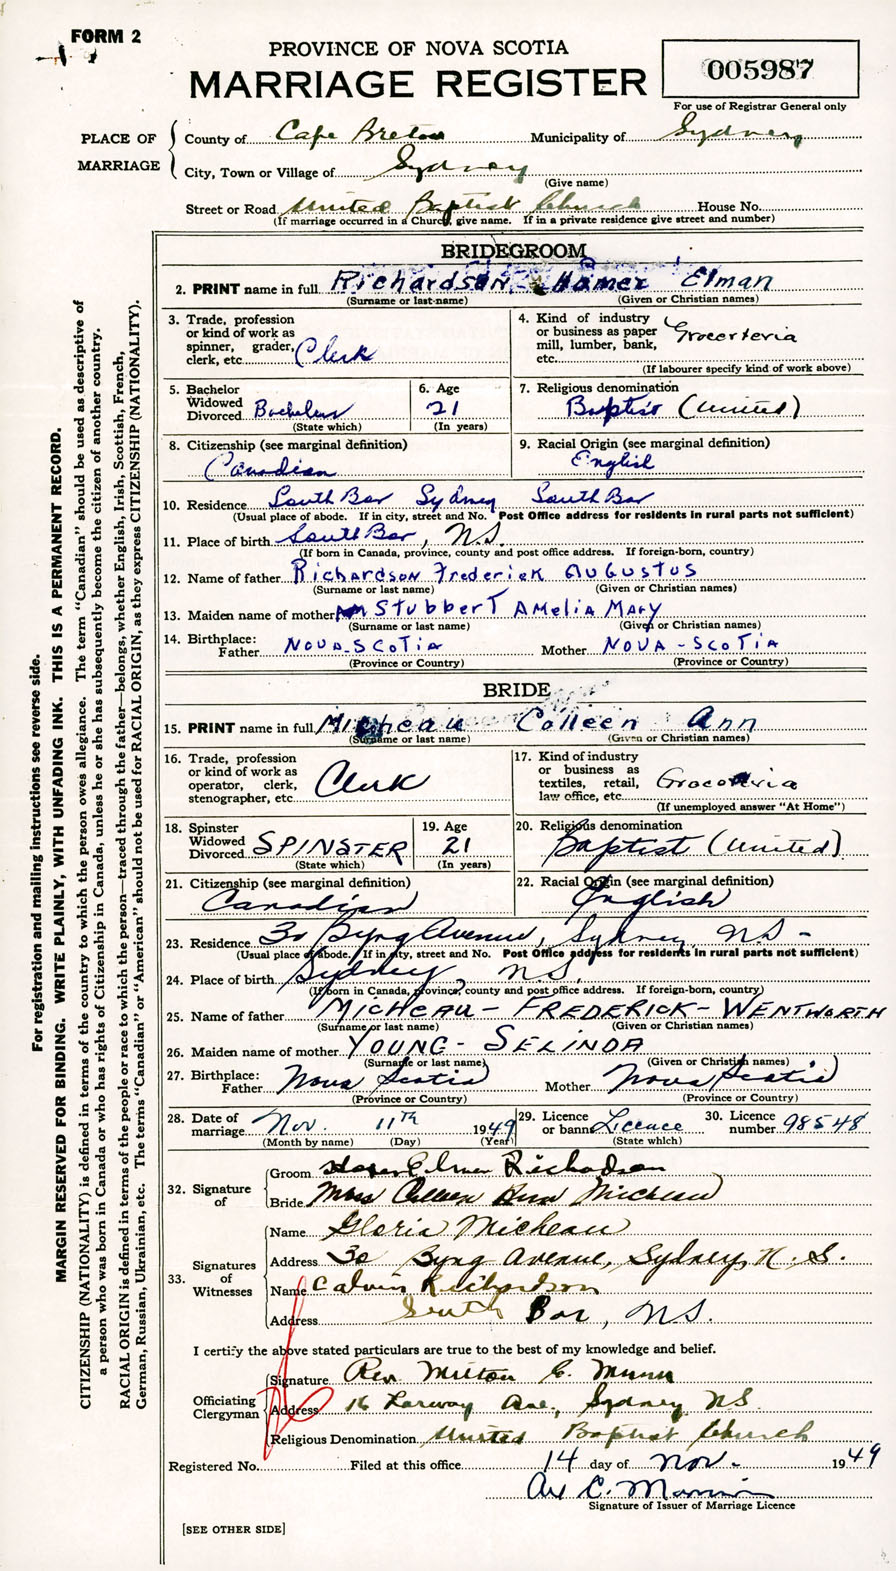 FORM 2
PROVINCE OF NOVA SCOTIA
MARRIAGE REGISTER
005987
For use of Registrar General only
PLACE OF MARRIAGE
County of Cape Breton Municipality of Sydney
City, Town or Village of Sydney
(Give name)
Street or Road United Baptist Church House No.
(If marriage occurred in a Church, give name. If in a private residence give street and number)
BRIDEGROOM
2. PRINT name in full Richardson - Homer Elman
(Surname or last name) (Given or Christian names)
3. Trade, profession or kind of work as spinner, grader, clerk, etc. Clerk
4. Kind of industry or business as paper mill, lumber, bank, etc. Grocerteria
(If labourer specify kind of work above)
5. Bachelor Widowed Divorced Bachelor
(State which)
6. Age 21
(In years)
7. Religious denomination
Baptist (United)
8. Citizenship (see marginal definition)
Canadian
9. Racial Origin (see marginal definition)
English
10. Residence South Bar Sydney South Bar
(Usual place of abode. If in city, street and No. Post Office address for residents in rural parts not sufficient)
11. Place of birth South Bar, N.S.
(If born in Canada, province, county and post office address. If foreign-born, country)
12. Name of father Richardson Frederick Augustus
(Surname or last name) (Given or Christian names)
13. Maiden name of mother Stubbert Amelia Mary
(Surname or last name) (Given or Christian names)
14. Birthplace:
Father Nova-Scotia Mother Nova-Scotia
(Province or Country) (Province or Country)
BRIDE
15. PRINT name in full Micheau Colleen Ann
(Surname or last name) (Given or Christian names)
16. Trade, profession or kind of work as operator, clerk, stenographer, etc. Clerk
17. Kind of industry or business as textiles, retail, law office, etc. Groceteria
(If unemployed answer "At Home")
18. Spinster Widowed Divorced SPINSTER
(State which)
19. Age 21
(In years)
20. Religious denomination
Baptist (United)
21. Citizenship (see marginal definition)
Canadian
22. Racial Origin (see marginal definition)
English
23. Residence 30 Byng Avenue, Sydney, N.S. -
(Usual place of abode. If in city, street and No. Post Office address for residents in rural parts not sufficient)
24. Place of birth Sydney, N.S.
(If born in Canada, province, county and post office address. If foreign-born, country)
25. Name of father MICHEAU - FREDERICK - WENTWORTH
(Surname or last name) (Given or Christian names)
26. Maiden name of mother YOUNG - SELINDA
(Surname or last name) (Given or Christian names)
27. Birthplace:
Father Nova Scotia Mother Nova Scotia
(Province or Country) (Province or Country)
28. Date of marriage Nov. 11th 1949
(Month by name) (Day) (Year)
29. Licence or banns Licence
(State which)
30. Licence number 98548
32. Signature of
Groom Homer Elmer Richardson
Bride Miss Colleen Ann Micheau
33. Signatures of Witnesses
Name Gloria Micheau
Address 30 Byng Avenue, Sydney, N.S.
Name Calvin Richardson
Address South Bar, N.S.
I certify the above stated particulars are true to the best of my knowledge and belief.
Officiating Clergyman
Signature Rev. Milton C. Munn
Address 16 Ave., Sydney, N.S.
Religious Denomination United Baptist Church
Registered No. Filed at this office 14 day of Nov. 1949
Signature of Issuer of Marriage Licence
[SEE OTHER SIDE]
For registration and mailing instructions see reverse side.
MARGIN RESERVED FOR BINDING. WRITE PLAINLY, WITH UNFADING INK. THIS IS A PERMANENT RECORD.
CITIZENSHIP (NATIONALITY) is defined in terms of the country to which the person owes allegiance. The term "Canadian" should be used as descriptive of
a person who was born in Canada or who has rights of Citizenship in Canada, unless he or she has subsequently become the citizen of another country.
RACIAL ORIGIN is defined in terms of the people or race to which the person—traced through the father—belongs, whether English, Irish, Scottish, French,
German, Russian, Ukrainian, etc. The terms "Canadian" or "American" should not be used for RACIAL ORIGIN, as they express CITIZENSHIP (NATIONALITY).